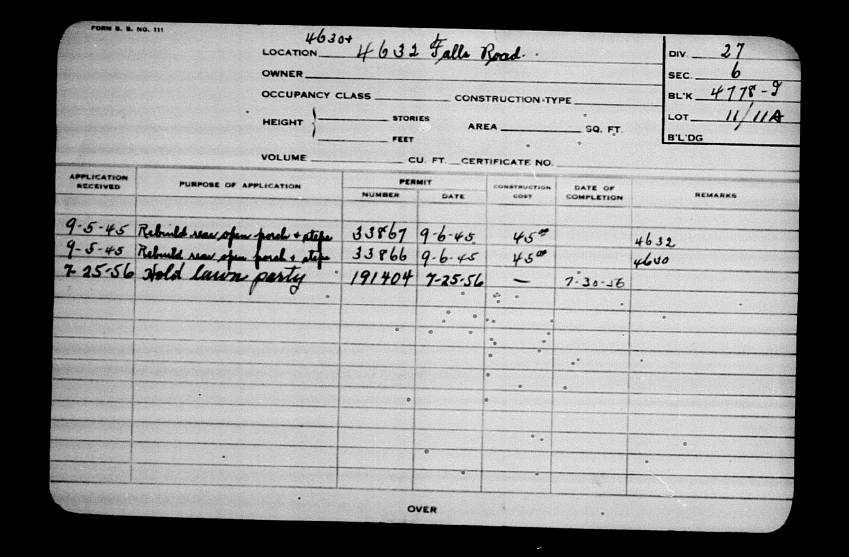 FORM B. B. NO. 111
4630+
LOCATION 4632 Falls Road
OWNER
OCCUPANCY CLASS CONSTRUCTION-TYPE
HEIGHT STORIES AREA SQ. FT.
FEET
VOLUME CU. FT. CERTIFICATE NO.
DIV. 27
SEC. 6
BL'K 4778-J
LOT 11/11A
B'L'DG
APPLICATION RECEIVED PURPOSE OF APPLICATION PERMIT NUMBER DATE CONSTRUCTION COST DATE OF COMPLETION REMARKS
9-5-45 Rebuild rear open porch + steps 33867 9-6-45 45⁰⁰ 4632
9-5-45 Rebuild rear open porch + steps 33866 9-6-45 45⁰⁰ 4630
7-25-56 Hold lawn party 191404 7-25-56 — 7-30-56
OVER